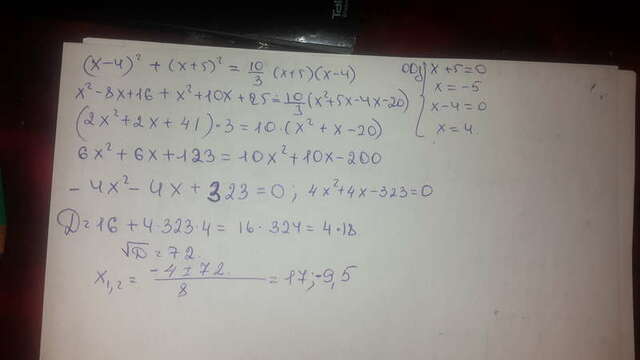 (x-4)² + (x+5)² = 10/3 (x+5)(x-4)
x²-8x+16 + x²+10x+25 = 10/3 (x²+5x-4x-20)
(2x²+2x+41)·3 = 10·(x²+x-20)
6x²+6x+123 = 10x²+10x-200
-4x²-4x+323=0; 4x²+4x-323=0
D=16+4·323·4= 16·324= 4·18
√D=72
x₁,₂ = (-4±72)/8 = 17;-9,5
ОДЗ { x+5=0
x=-5
x-4=0
x=4